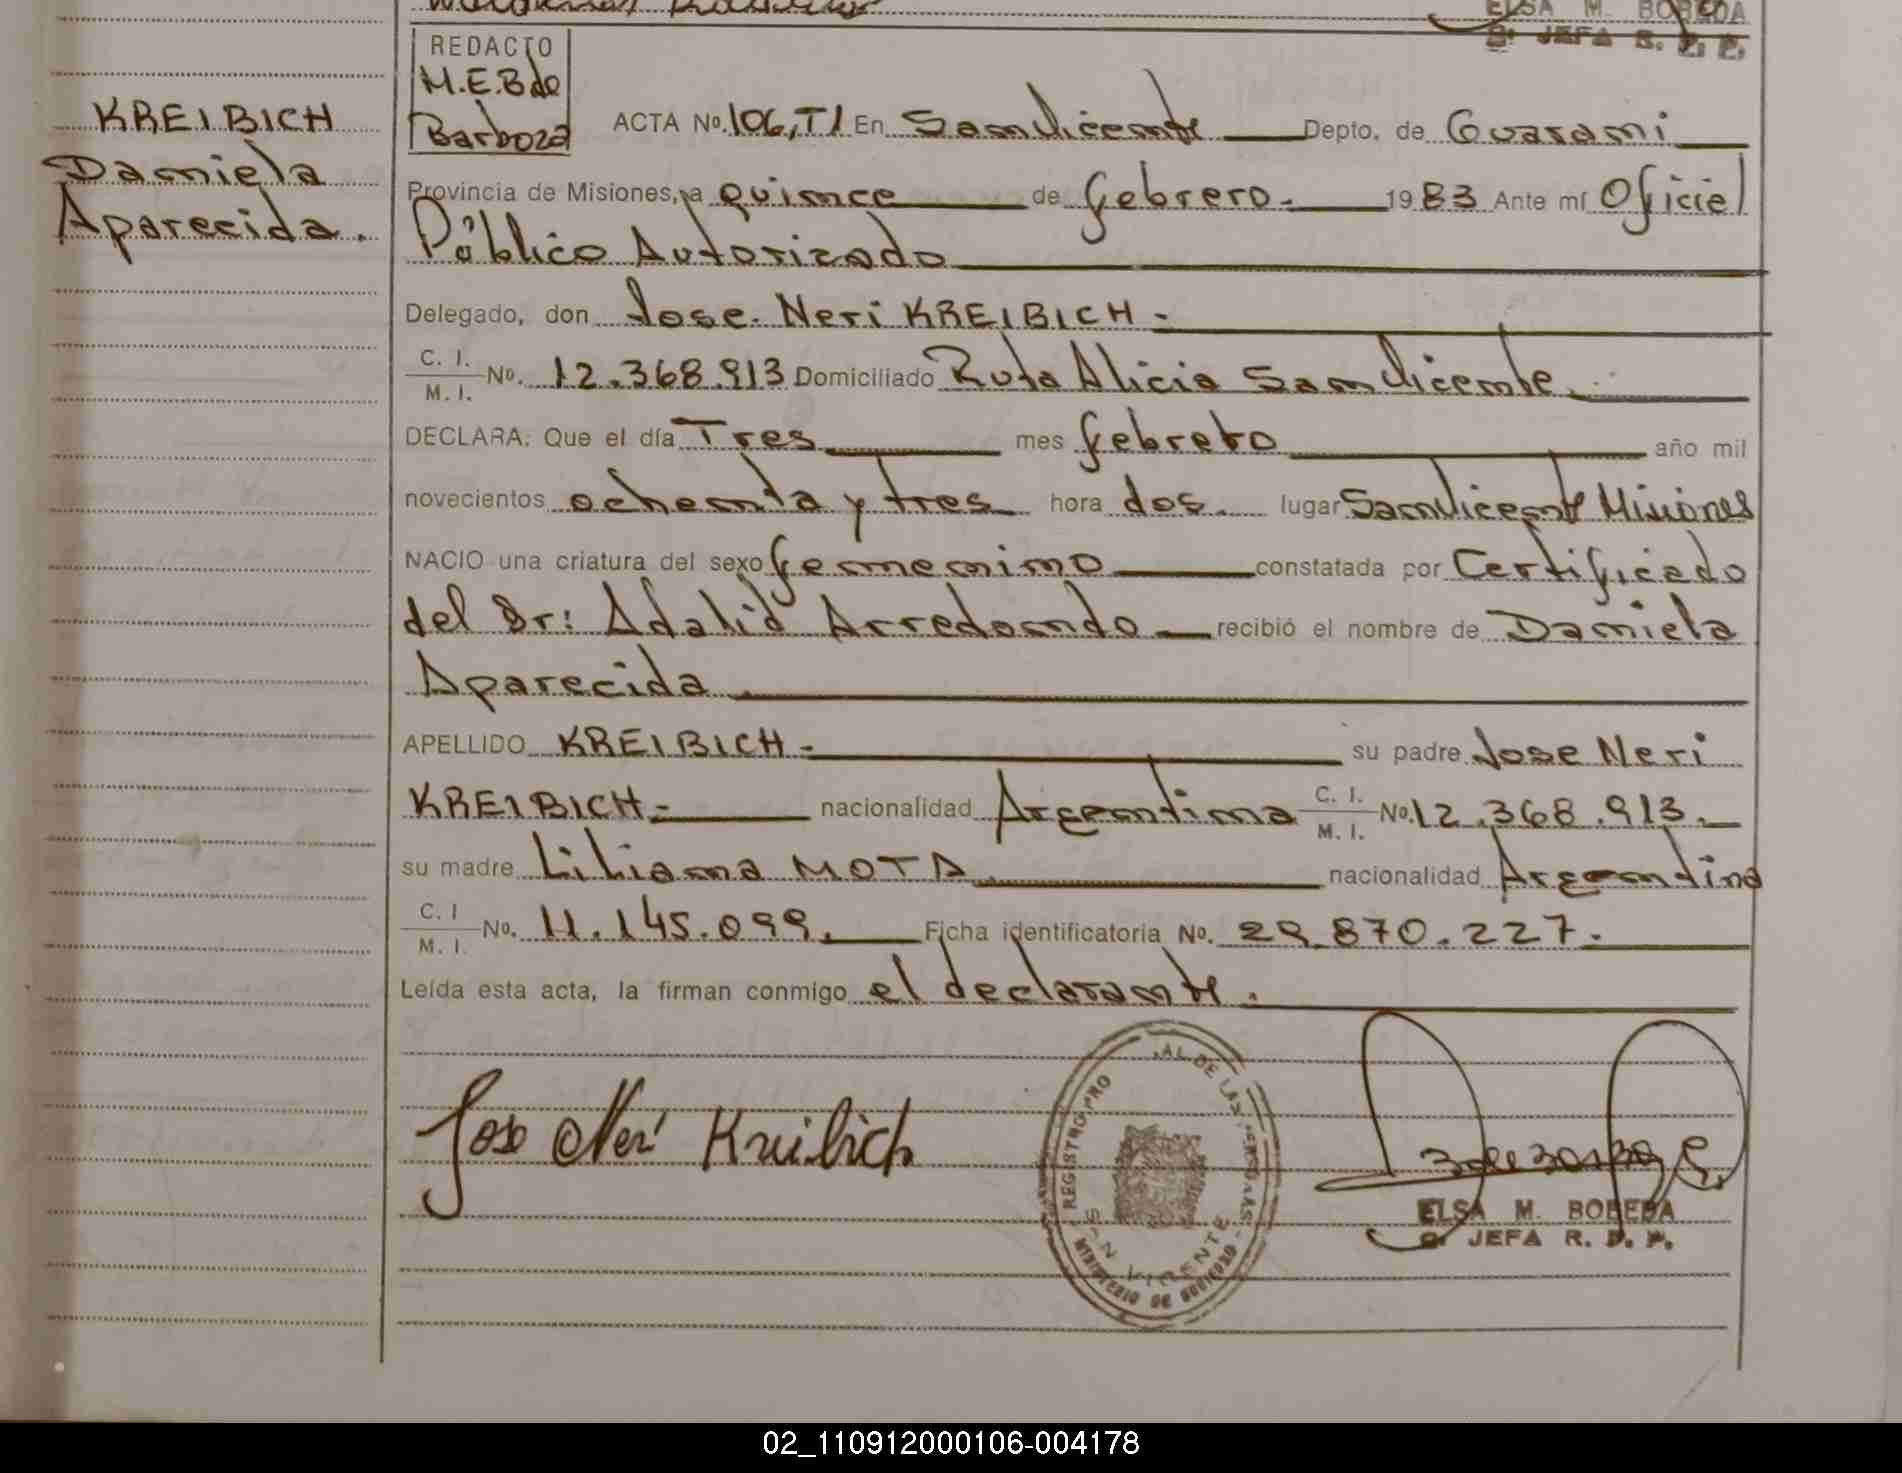 ELSA M. BOBEDA
JEFA R. P. P.
REDACTO
M.E.B de
Barboza
KREIBICH
Daniela
Aparecida.
ACTA No. 106,T1 En San Vicente Depto. de Guarani
Provincia de Misiones, a quince de febrero. 1983 Ante mí Oficial
Público Autorizado
Delegado, don Jose Neri KREIBICH -
C. I.
M. I. No. 12.368.913 Domiciliado Ruta Alicia San Vicente.
DECLARA: Que el día Tres mes febrero año mil
novecientos ochenta y tres hora dos. lugar San Vicente Misiones
NACIO una criatura del sexo femenino constatada por Certificado
del Dr: Adalid Arredondo recibió el nombre de Daniela
Aparecida
APELLIDO KREIBICH - su padre Jose Neri
KREIBICH - nacionalidad Argentina C. I.
M. I. No. 12.368.913.
su madre Liliana MOTA nacionalidad Argentina
C. I
M. I. No. 11.145.099. Ficha identificatoria No. 29.870.227.
Leída esta acta, la firman conmigo el declarante.
Jose Neri Kreibich
REGISTRO PRO AL DE LAS PERSONAS
SAN VICENTE
MINISTERIO DE GOBIERNO
ELSA M. BOBEDA
JEFA R. P. P.
02_110912000106-004178